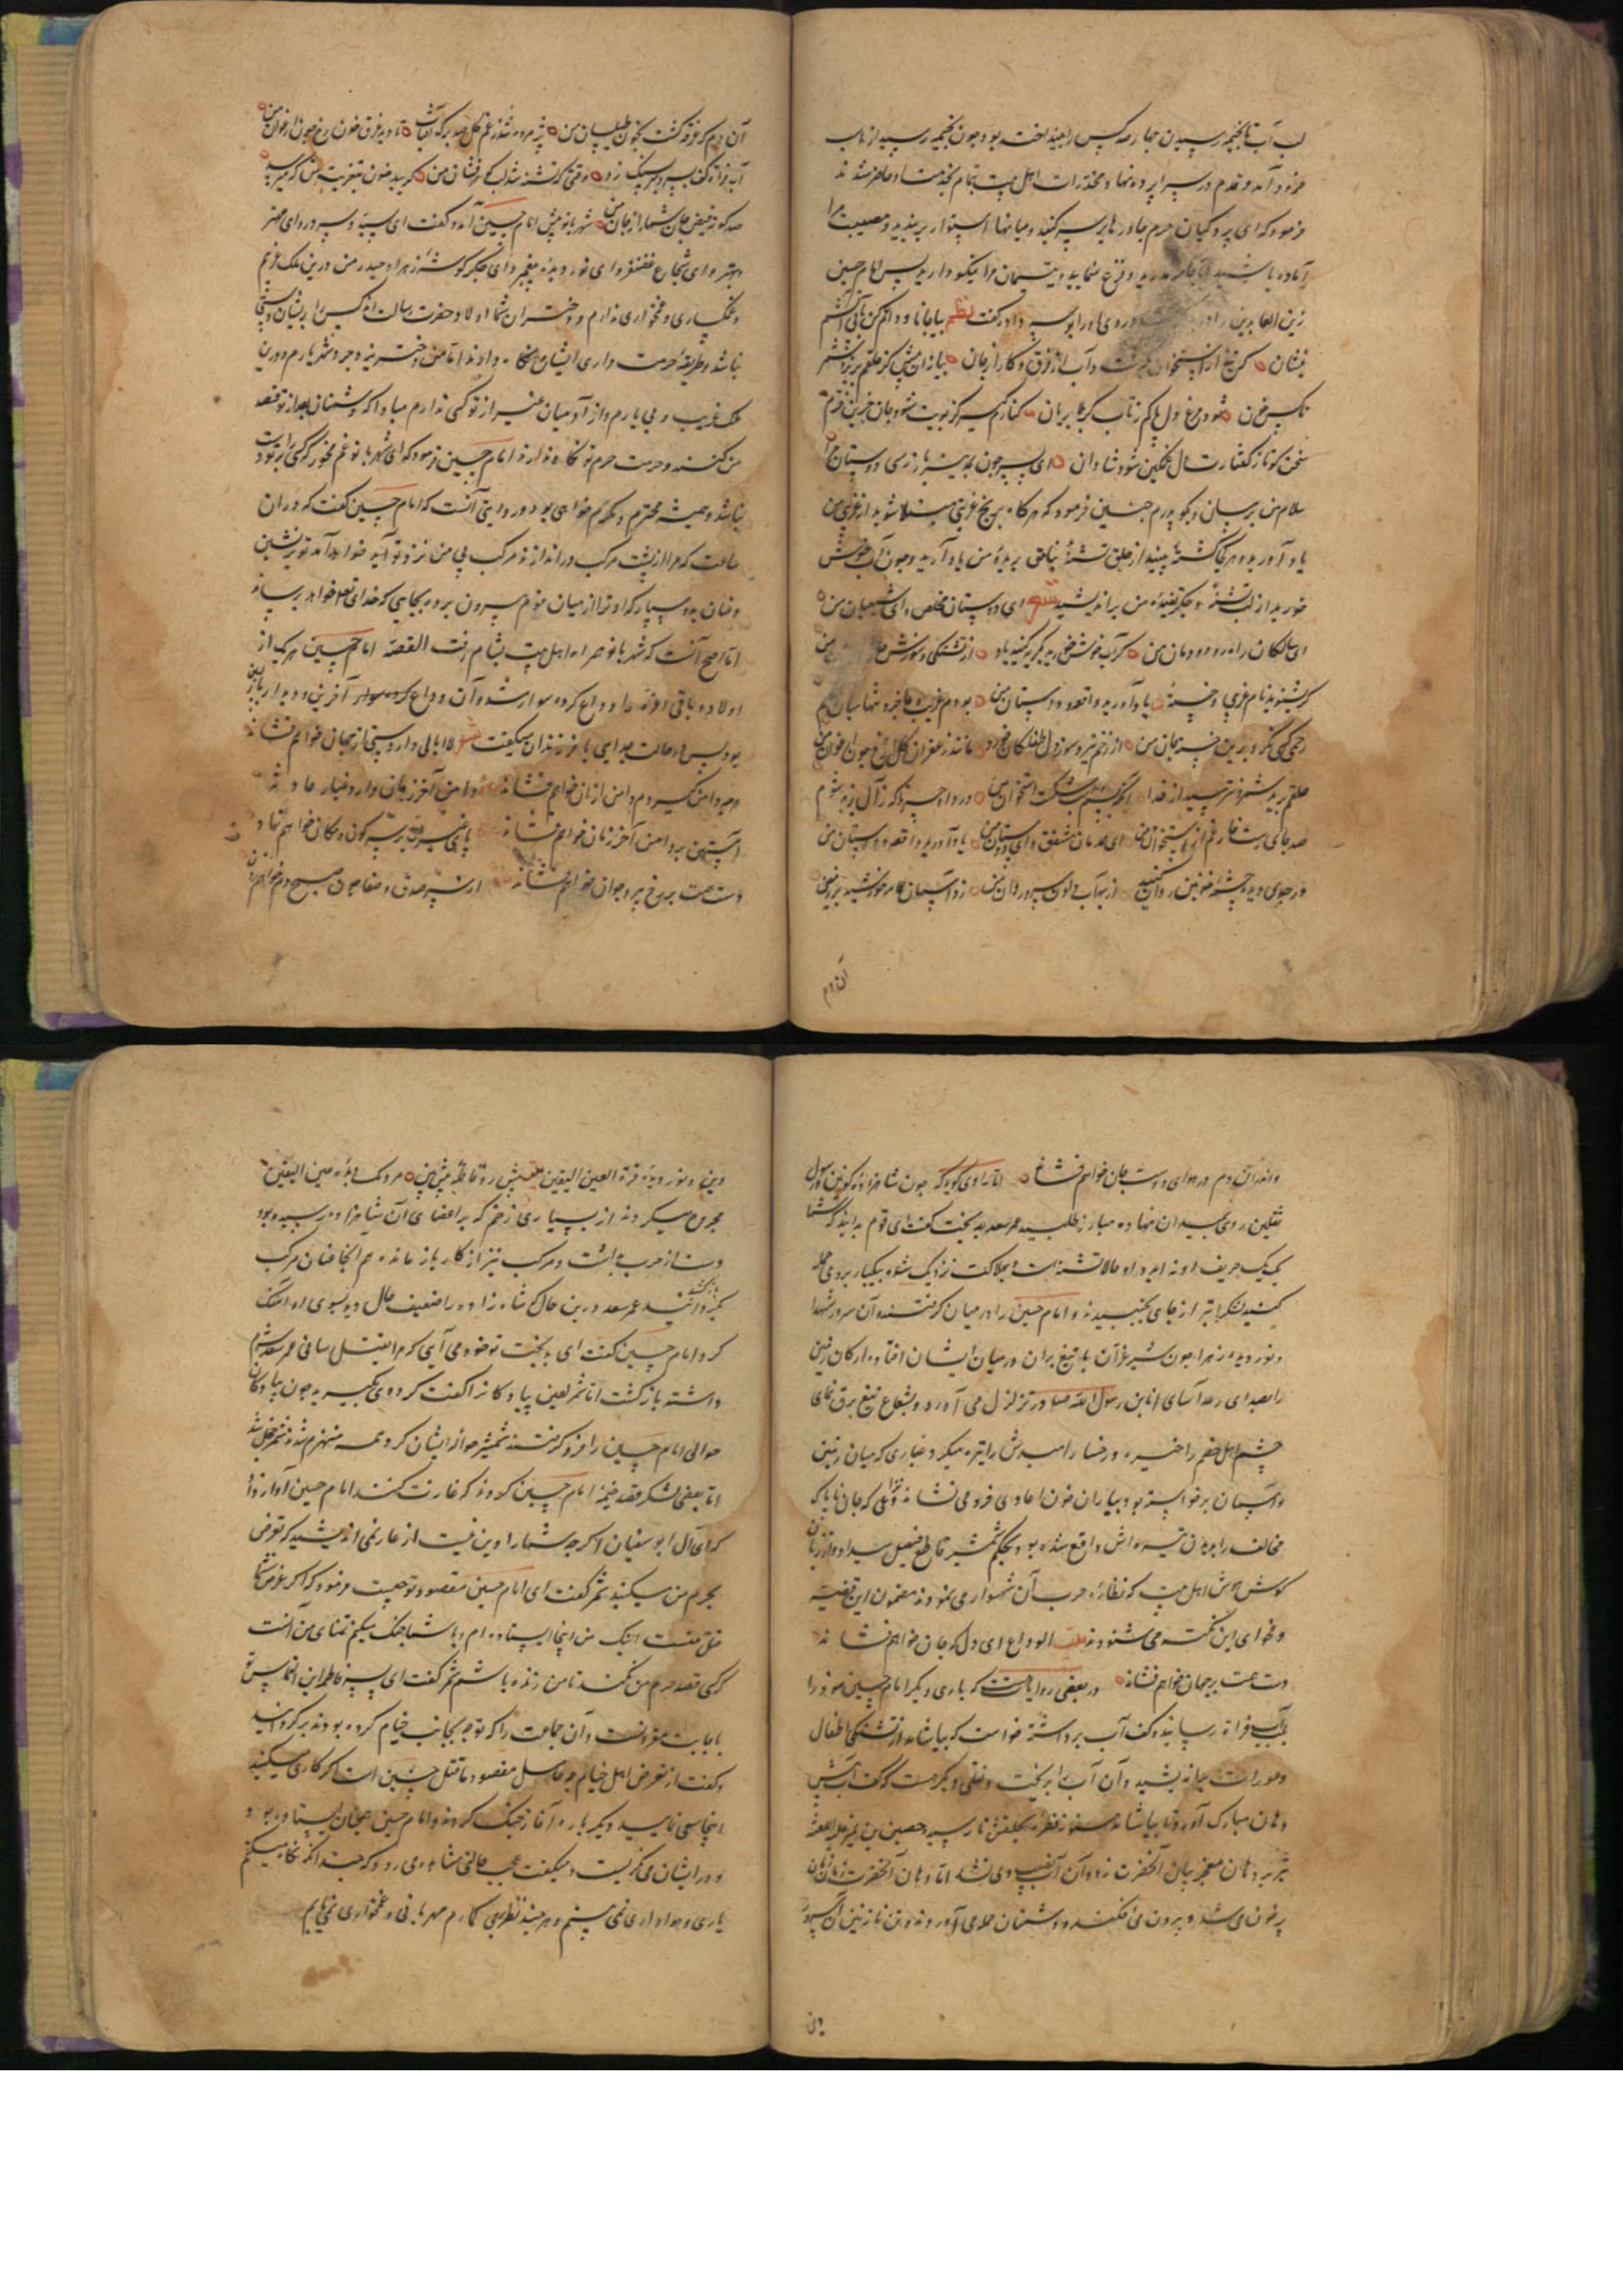 لب آب تا بخیمه رسیدن چهار صد کس را بیفکنده بود و چون بخیمه رسید از مرکب
فرود آمد و قدم در سراپرده نهاد و مخدرات اهل بیت تمام بخدمت او حاضر شدند
فرمود که ای پردگیان حرم چادرها بر سر کنید و میانها استوار بربندید و مصیبت مرا
آماده باشید اما جامه مدرید و فزع منمایید و یتیمان مرا نیکو دارید پس امام حسین
زین العابدین را در و روی او را بوسه داد و گفت نظم بیا جانا وداعم کن
بنشان کز استخوان و آب از فرق و کار از جان بیا زان پیش کز حلقم بریزد
شود مرغ دل پاکم ز تاب کربلا بریان کنارم گیر کز بویت شود جان حزین خرم
سخن گو تا ز گفتارت دل غمگین شود شادان ای پسر چون بمدینه باز رسی دوستان مرا
سلام من برسان و بگو پدرم چنین فرمود که هر گاه برنج غربتی مبتلا شوید از غریبی من
یاد آورید و هر گاه کشته بینید از حلق تشنه بناحق بریده من یاد آرید و چون آب خوش
خورید از لب تشنه و جگر تفتیده من براندیشید شعر ای دوستان مخلص و ای شیعیان من
ای سالکان راه و دودمان من گر آب خوش خورید بگریه کنید یاد از تشنگی و سوزش
گر بشنوید نام غریبی و خسته یاد آورید واقعه دوستان من بودم غریب و عاجز و تنها میان
رحمی کسی نکرد برین از زخم تیر و سوز دل طفلکان خود مانند زعفران گل رخ چون ارغوان من
حلقم برید شمر و نترسید از خدا شکست استخوان من دردا و حسرتا که ز آل زیاد شوم
صد جای استخوان من ای همدمان مشفق و ای دوستان من یاد آورید واقعه دوستان من
در جوی دیده چشمه خونین روان کنید از بهر آب دادن سرو روان من زد آسمان کلاه خورشید بر زمین
آن دم
آن دم که غرقه گشت بخون طیلسان من پژمرده شد ز غم گل صد برگ آفتاب تا دید غرق خون رخ چون ارغوان من
آب فرات سر بر سنگ زد وقتی که تشنه شد لب گوهرفشان من گریید خون بتعزیت من که میرسد
صد گونه فیض جان شما را از جان من شهربانو پیش امام حسین آمد و گفت ای سید و سرور و ای مهتر
و بهتر و ای شجاع غضنفر و ای نور دیده پیغمبر و ای جگر گوشه زهرا و حیدر من درین ملک غریبم
و غمگساری و غمخواری ندارم و دختران شما اولاد حضرت رسالت اند کس را بر ایشان دستی
نباشد و طریقه حرمت داری ایشان نگاه دارند اما من دختر یزدجرد شهریارم و درین
ملک غریب و بی یارم و از آدمیان غیر از تو کسی ندارم مبادا که دشمنان بعد از تو قصد
من کنند و حرمت حرم تو نگاه ندارند امام حسین فرمود که ای شهربانو غم مخور که کسی را بر تو دست
نباشد و همیشه محترم و مکرم خواهی بود و روایتی آنست که امام حسین گفت که در آن
ساعت که مرا از پشت مرکب در اندازند مرکب بی من نزد تو آید خواهد آمد تو بر نشین
و عنان بدو سپار که او ترا از میان قوم بیرون برده بجایی که خدای تعالی خواهد برساند
اما اصح آنست که شهربانو همراه اهل بیت بشام رفت القصه امام حسین هر یک از
اولاد و باقی را وداع کرده سوار شد و آن وداع آخرین و دیدار بازپسین
بود پس در حالت جدایی با فرزندان میگفت شعر لاابالی وار دستی از جهان خواهم فشاند
هر چه دامن گیردم دامن از آن خواهم فشاند دامن آخر زمان دارد غبار حادثه
آستین بر دامن آخر زمان خواهم فشاند پای غیرت بر سر کون و مکان خواهم نهاد
دست همت بر رخ پیر و جوان خواهم فشاند از سر صدق و صفا چون صبح دم خواهم زدن
و اندر آن دم در هوای دوست جان خواهم فشاند اما راوی گوید که چون شاهزاده کونین و رسول
ثقلین روی بمیدان نهاده مبارز طلبید عمر سعد بد بخت گفت ای قوم بدانید که شما
یک یک حریف او نه اید و او حالا تشنه است و بهلاکت نزدیک شده بیکبار برو حمله
کنید لشکر از جای بجنبیدند و امام حسین را در میان گرفتند و آن سرور شهدا
و نور دیده زهرا چون شیر غران با تیغ بران در میان ایشان افتاده ارکان زمین
را بصدای رعد آسای انا ابن رسول الله صلعم در تزلزل می آورد و بشعاع تیغ برق نمای
چشم اهل خصم را خیره و رخسار امیدش را تیره میکرد و غباری که میان زمین
و آسمان برخواسته بود بباران خون اعادی فرو می نشاند که جان ناپاک
مخالف را بدن تیره اش واقع شده بود بحکم شمشیر قاطع فیصل میداد و از زبان
گوش هوش اهل بیت که نظاره حرب آن شهسوار می نمودند مضمون این قضیه
و فحوای این نکته می شنودند بیت الوداع ای دل که جان خواهم فشاند
دست همت بر جهان خواهم فشاند در بعضی روایات هست که باری دیگر امام حسین خود را
بآب فرات رسانید و کف آب برداشته خواست که بیاشامد از تشنگی اطفال
و عورات بیاندیشید و آن آب را بریخت و نقلی دیگر هست که کف آب پیش
دهان مبارک آورد تا بیاشامد هنوز قطره بحلقش نارسیده حصین بن نمیر علیه اللعنه
تیر بر دهان معجز بیان آنحضرت زد و آن آب نصیب وی نشد اما دهان آنحضرت زمان زمان
پر خون می شد و بیرون می افکند و دشمنان حمله می آوردند و تن نازنین آن سرور
دین
دین و نور دیده قرة العین الیقین بیت پیش رو قافله پیش بین مردمک دیده عین الیقین
مجروح میکردند از بسیاری زخم که بر اعضای آن شاهزاده رسیده بود
دست از حرب بداشت و مرکب نیز از کار باز مانده هم آنجا عنان مرکب
عمر سعد درین حال که شاه زاده را ضعیف حال دید بسوی او آهنگ
کرد امام حسین گفت ای بدبخت تو خود می آیی که مرا بقتل رسانی عمر سعد شرم
داشته بازگشت اما شمر لعین پیادگانرا گفت گرد وی بگیرید چون پیادگان
حوالی امام حسین را فرو گرفتند شمشیر حواله ایشان کرد همه منهزم شدند شمر خجل شد
اما بعضی لشکر قصد خیمه امام حسین کردند که غارت کنند امام حسین آواز داد
که ای آل ابوسفیان اگرچه شما را دین نیست از عار نمی اندیشید که تعرض
بحرم من میکنید شمر گفت ای امام حسین مقصود تو چیست فرمود که اگر غرض شما
قتل منست اینک من اینجا ایستاده ام و با شما جنگ میکنم تمنای من آنست
که کسی قصد حرم من نکند تا من زنده باشم شمر گفت ای پسر فاطمه این التماس تو
باجابت مقرونست و آن جماعت را که توجه بجانب خیام کرده بودند برگردانید
و گفت از تعرض اهل خیام چه حاصل مقصود ما قتل حسین است اگر کاری میکنید
اینجا سعی نمایید دیگر باره آغاز جنگ کردند و امام حسین همچنان ایستاده بود
و در ایشان می نگریست و میگفت عجب حالتی مشاهده می رود که چندانکه نگاه میکنم
یاری و هواداری نمی بینم و هر چند نظر می گمارم مهربانی و غمخواری نمی یابیم